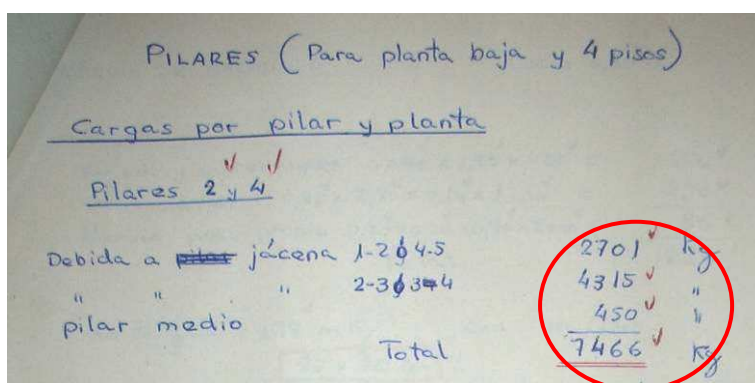 PILARES (Para planta baja y 4 pisos)
Cargas por pilar y planta
Pilares 2 y 4
Debida a jácena 1-2 ó 4-5 2701 Kg
" " " 2-3 ó 3-4 4315 "
pilar medio 450 "
Total 7466 Kg